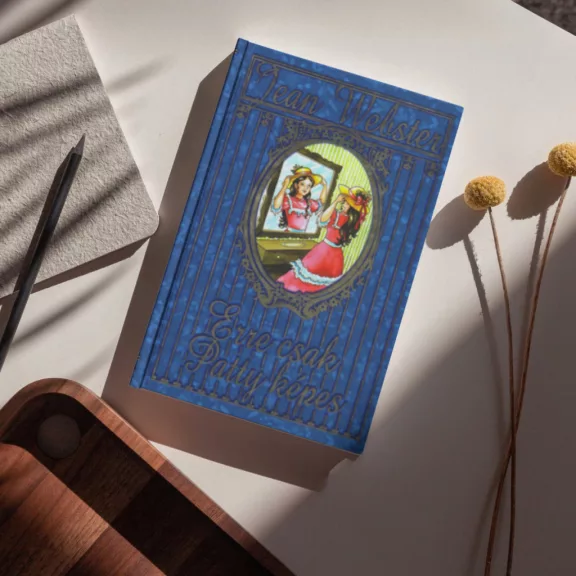 Jean Webster
Erre csak
Patty képes